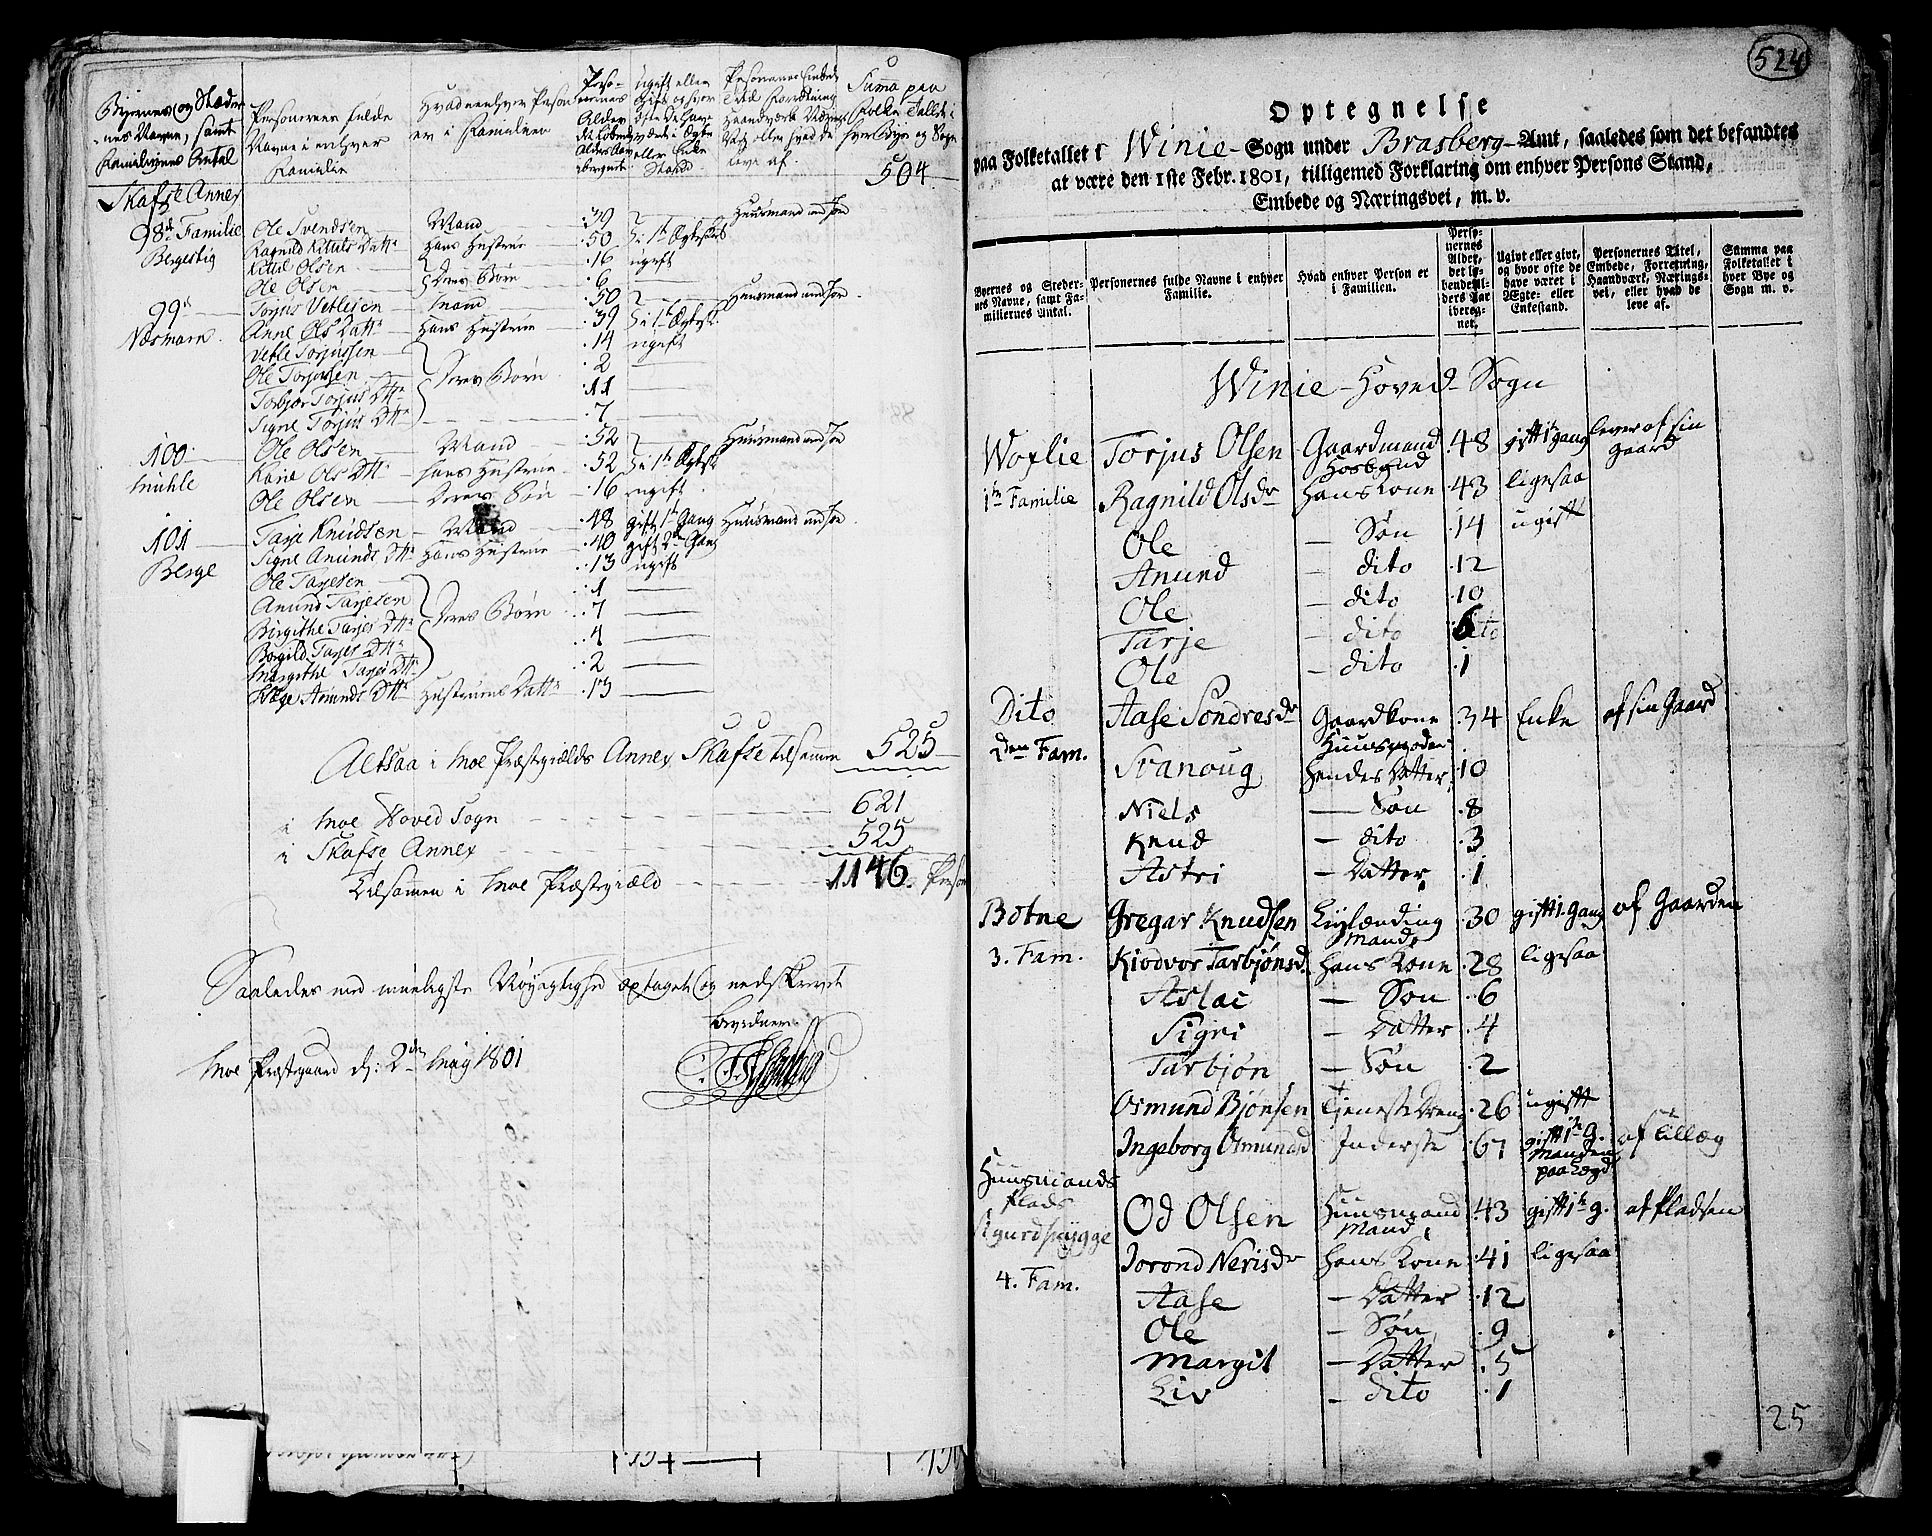 Byernes og Stæder
nes Navne, samt
Familiernes Antal
Personernes fulde
Navne i enhver
Familie
Hvad enhver Person
er i Familien
Perso-
nernes
Alder
ugift eller
gift og hvor
ofte de have
været i Ægte
eller Enke
Stand.
Summa paa
Folke Tallet i
hver Bye og Sogn
504.
Skafse Annex
98de Familie Ole Svendsen Mand 39 Huusmand med Jord
Bergestig Ragnild Kittils Dattr hans Hustrue 50 i 1ste Ægteskab
Kittil Olsen 16 ugift
Ole Olsen deres Børn 6
99de Torjus Vetlesen Mand 50 Huusmand med Jord
Næsmoen Anne Ols Dattr hans Hustrue 39 i 1ste Ægtesk.
Vetle Torjussen 14 ugift
Ole Torjussen deres Børn 2
Torbjør Torjus Dttr 11
Signe Torjus Dttr 7
100 Ole Olsen Mand 52 Huusmand med Jord
Kari Ols Dttr hans Hustrue 52 i 1ste Ægtesk
Ole Olsen deres Søn 16 ugift
101 Tarje Knudsen Mand 48 gift 1ste Gang Huusmand med Jor
Berge Signe Amunds Dttr hans Hustrue 40 gift 2den Gang
Ole Tarjesen 13 ugift
Anund Tarjesen 1
Birgithe Tarjes Dttr deres Børn 7
Borgild Tarjes Dttr 4
Margithe Tarjes Dttr 2
Amunds Dttr Hustrues Dattr 13
Altsaa i Moe Præstegjælds Annex Skafse tilsammen 525
i Moe Hoved Sogn 621
i Skafse Annex 525
tilsammen i Moe Præstegiæld 1146. Person
Saaledes med mueligste Nøyagtighed optaget og nedskrevet
bevidner
Moe Præstegaard d: 2den May 1801
524
Optegnelse
paa Folketallet i Winie Sogn under Brasberg Amt, saaledes som det befandtes
at være den 1ste Febr. 1801, tilligemed Forklaring om enhver Persons Stand,
Embede og Næringsvei, m. v.
Byernes og Steder-
nes Navne,
samt Fa-
miliernes Antal.
Personernes fulde Navne i enhver
Familie.
Hvad enhver Person er
i Familien.
Perso-
nernes
Alder,
det lø-
bende Al-
ders Aar
ibereg-
net.
Ugivt eller givt,
og hvor ofte de
have været i
Ægte- eller
Enkestand.
Personernes Titel,
Embede, Forretning,
Haandværk, Nærings-
vei, eller hvad de
leve af.
Summa paa
Folketallet i
hver Bye og
Sogn m. v.
Winie Hoved Sogn
Woxlie Torjus Olsen Gaardmand Hosbond 48 gift 1ste gang lever af sin gaard
1ste Familie Ragnild Olsdr Hans Kone 43 ligesaa
Ole – Søn 14 ugift
Anund – dito 12
Ole – dito 10
Tarje – dito 6
Ole – dito 1
Dito Aase Sondresdr Gaardkone Huusmoder 34 Enke af sin Gaard
2den Fam. Svanoug Hendes Datter 10
Niels – Søn 8
Knud – dito 3
Astri – Datter 1
Botne Gregar Knudsen Leylænding Mand 30 gift 1. Gang af Gaarden
3. Fam. Kiodvor Tarbjønsd. Hans Kone 28 ligesaa
Aslac – Søn 6
Sigri – Datter 4
Tarbjøn – Søn 2
Osmund Bjønsen Tjeneste Dreng 26 ugift
Ingeborg Osmundsd Inderste 67 gift 1ste g. Manden paa Lægd af tillæg
Huusmands
Plads
4. Fam.
Od Olsen Huusmand Mand 43 gift 1ste g. af Pladsen
Jorond Nerisdr Hans Kone 41 ligesaa
Aase – Datter 12
Ole – Søn 9
Margit – Datter 5
Liv – dito 1
25